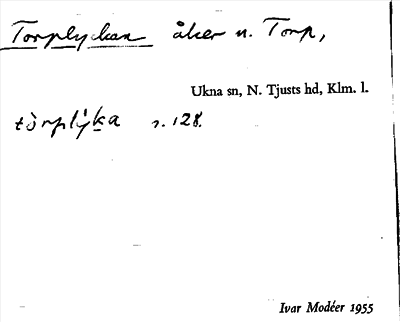 Torplyckan åker u. Torp,
Ukna sn, N. Tjusts hd, Klm. l.
tòrplýka s. 128.
Ivar Modéer 1955